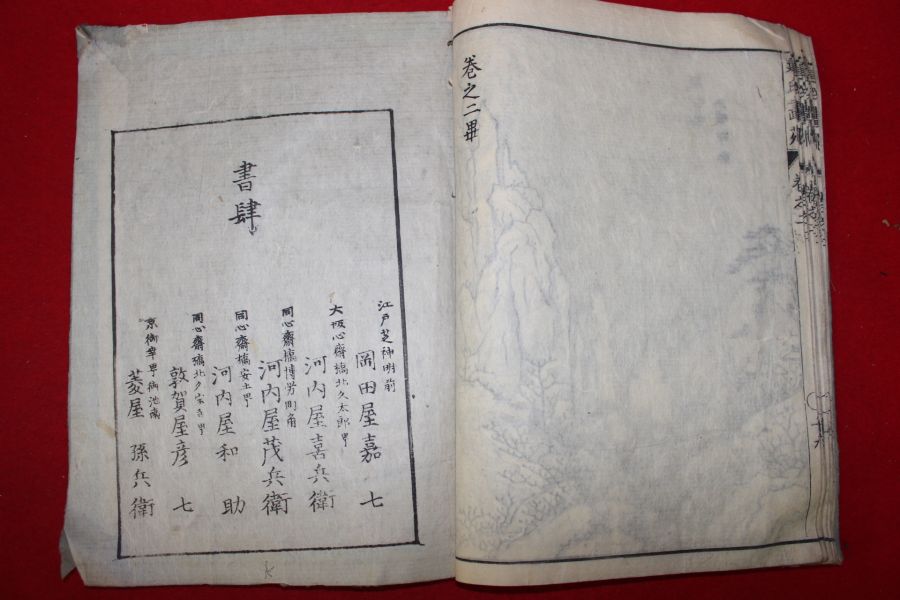 卷之二畢
書肆
江戸芝神明前
岡田屋嘉七
大坂心齋橋北久太郎町
河内屋喜兵衛
同心齋橋博労町角
河内屋茂兵衛
同心齋橋安土町
河内屋和助
同心齋橋北久宝寺町
敦賀屋彦七
京御幸町御池南
菱屋孫兵衛